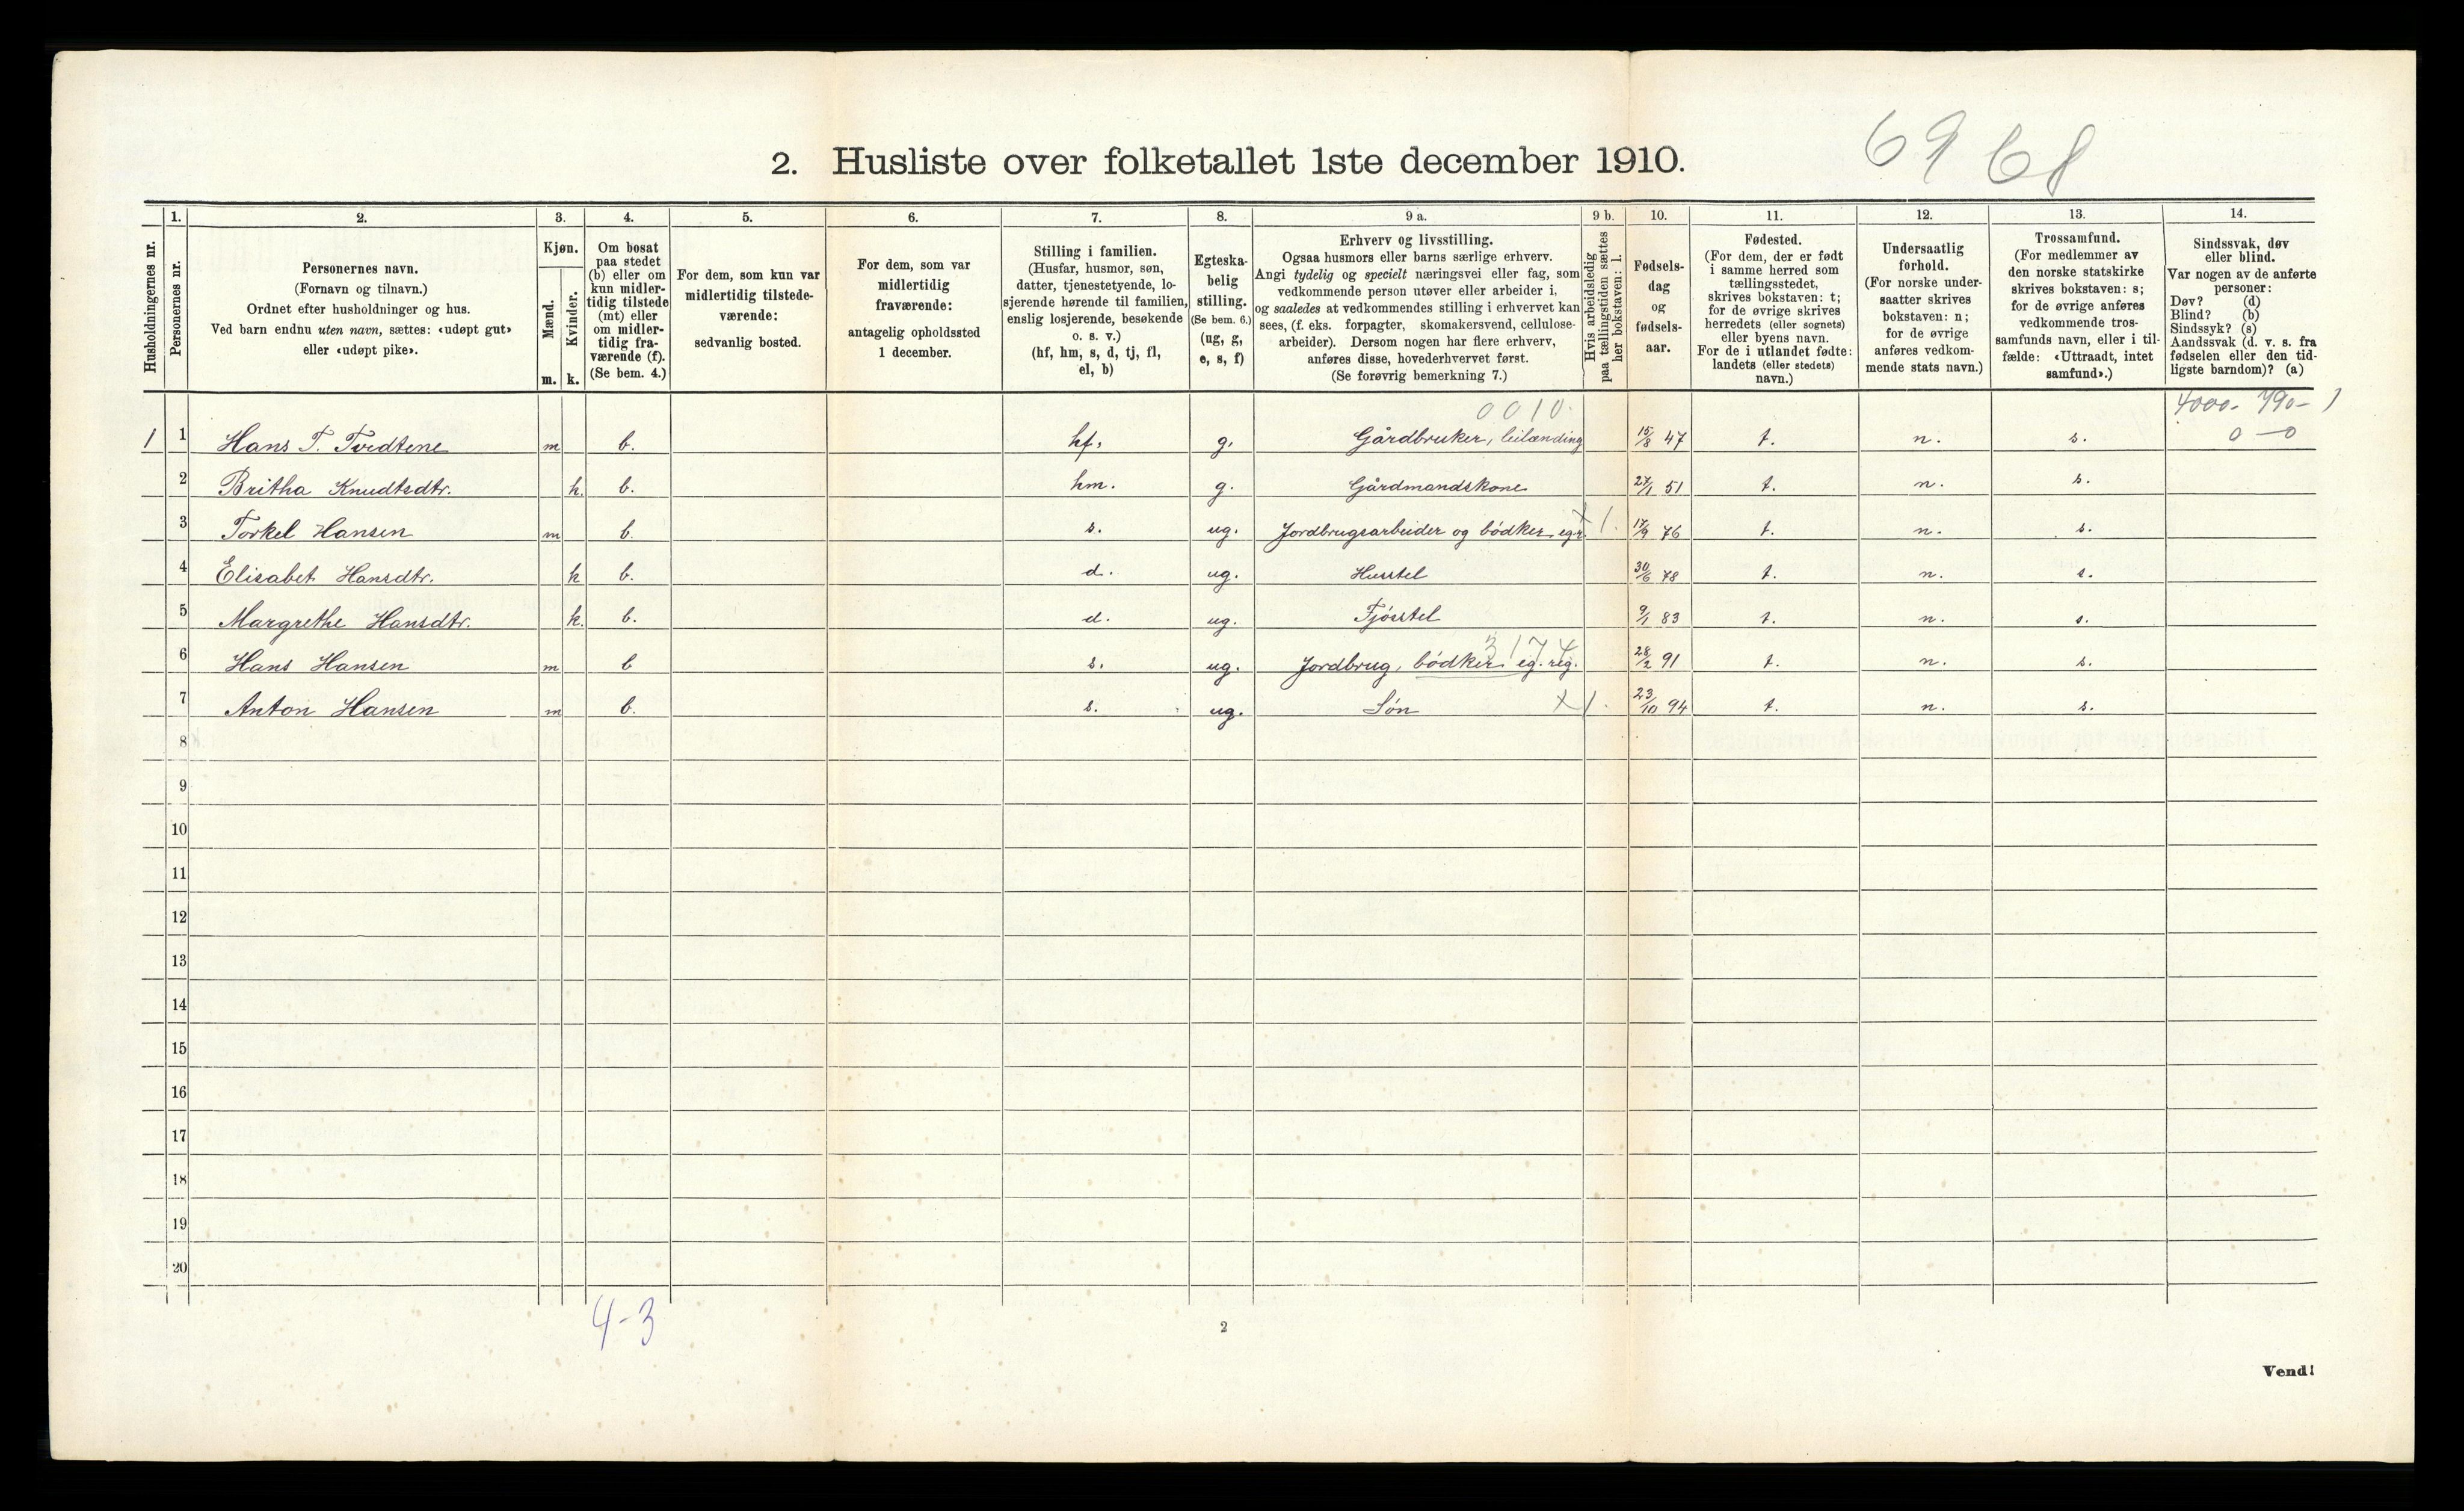 69 68
2. Husliste over folketallet 1ste december 1910.
Husholdningernes nr.
1. Personernes nr.
2. Personernes navn. (Fornavn og tilnavn.) Ordnet efter husholdninger og hus. Ved barn endnu uten navn, sættes: «udøpt gut» eller «udøpt pike».
3. Kjøn. Mænd. m. Kvinder. k.
4. Om bosat paa stedet (b) eller om kun midler-tidig tilstede (mt) eller om midler-tidig fra-værende (f). (Se bem. 4.)
5. For dem, som kun var midlertidig tilstede-værende: sedvanlig bosted.
6. For dem, som var midlertidig fraværende: antagelig opholdssted 1 december.
7. Stilling i familien. (Husfar, husmor, søn, datter, tjenestetyende, lo-sjerende hørende til familien, enslig losjerende, besøkende o. s. v.) (hf, hm, s, d, tj, fl, el, b)
8. Egteska-belig stilling. (Se bem. 6.) (ug, g, e, s, f)
9 a. Erhverv og livsstilling. Ogsaa husmors eller barns særlige erhverv. Angi tydelig og specielt næringsvei eller fag, som vedkommende person utøver eller arbeider i, og saaledes at vedkommendes stilling i erhvervet kan sees, (f. eks. forpagter, skomakersvend, cellulose-arbeider). Dersom nogen har flere erhverv, anføres disse, hovederhvervet først. (Se forøvrig bemerkning 7.)
9 b. Hvis arbeidsledig paa tællingstiden sættes her bokstaven: l.
10. Fødsels-dag og fødsels-aar.
11. Fødested. (For dem, der er født i samme herred som tællingsstedet, skrives bokstaven: t; for de øvrige skrives herredets (eller sognets) eller byens navn. For de i utlandet fødte: landets (eller stedets) navn.)
12. Undersaatlig forhold. (For norske under-saatter skrives bokstaven: n; for de øvrige anføres vedkom-mende stats navn.)
13. Trossamfund. (For medlemmer av den norske statskirke skrives bokstaven: s; for de øvrige anføres vedkommende tros-samfunds navn, eller i til-fælde: «Uttraadt, intet samfund».)
14. Sindssvak, døv eller blind. Var nogen av de anførte personer: Døv? (d) Blind? (b) Sindssyk? (s) Aandssvak (d. v. s. fra fødselen eller den tid-ligste barndom)? (a)
0010. 4000- 790- 1
1 1 Hans T. Tvedtene m b. hf. g. Gårdbruker, leilænding 15/8 47 t. n. s. 0 - 0
2 Britha Knudtsdtr. k. b. hm. g. Gårdmandskone 27/1 51 t. n. s.
3 Torkel Hansen m b. s. ug. Jordbrugsarbeider og bödker egr. x 1. 17/9 76 t. n. s.
4 Elisabet Hansdtr. k b. d. ug. Husstel 30/6 78 t. n. s.
5 Margrethe Hansdtr. k. b. d. ug. Fjösstel 9/1 83 t. n. s.
3174
6 Hans Hansen m b s. ug. Jordbrug, bödker eg. reg. 28/2 91 t. n. s.
7 Anton Hansen m b. s. ug. Sön x 1. 23/10 94 t. n. s.
8
9
10
11
12
13
14
15
16
17
18
19
20
4-3
2
Vend!